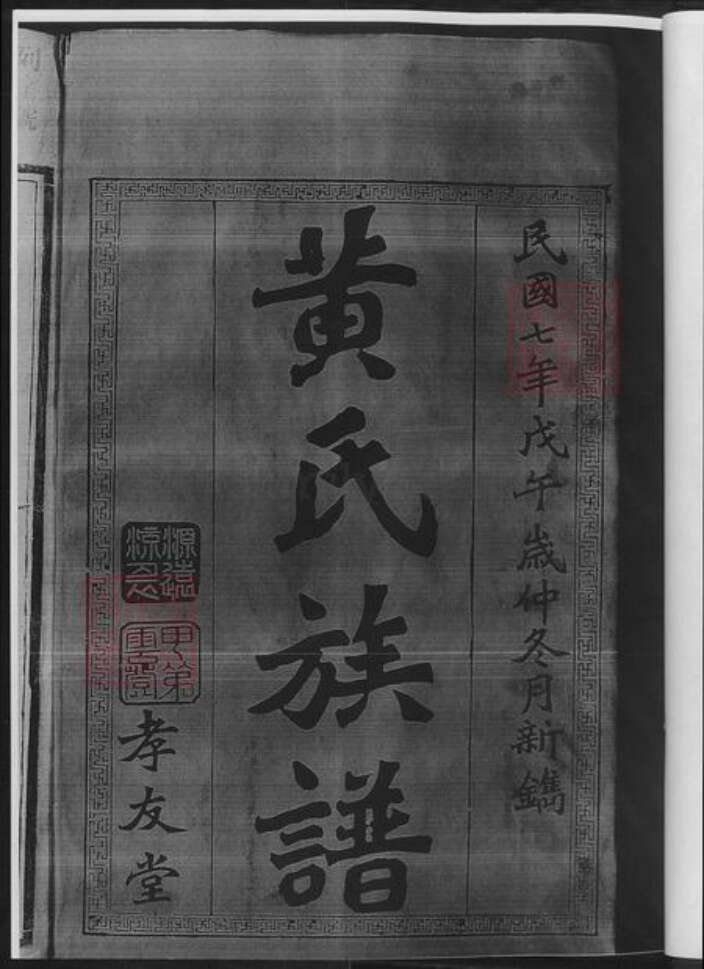 民國七年戊午歲仲冬月新鐫
黃氏族譜
源遠
甲第
孝友堂